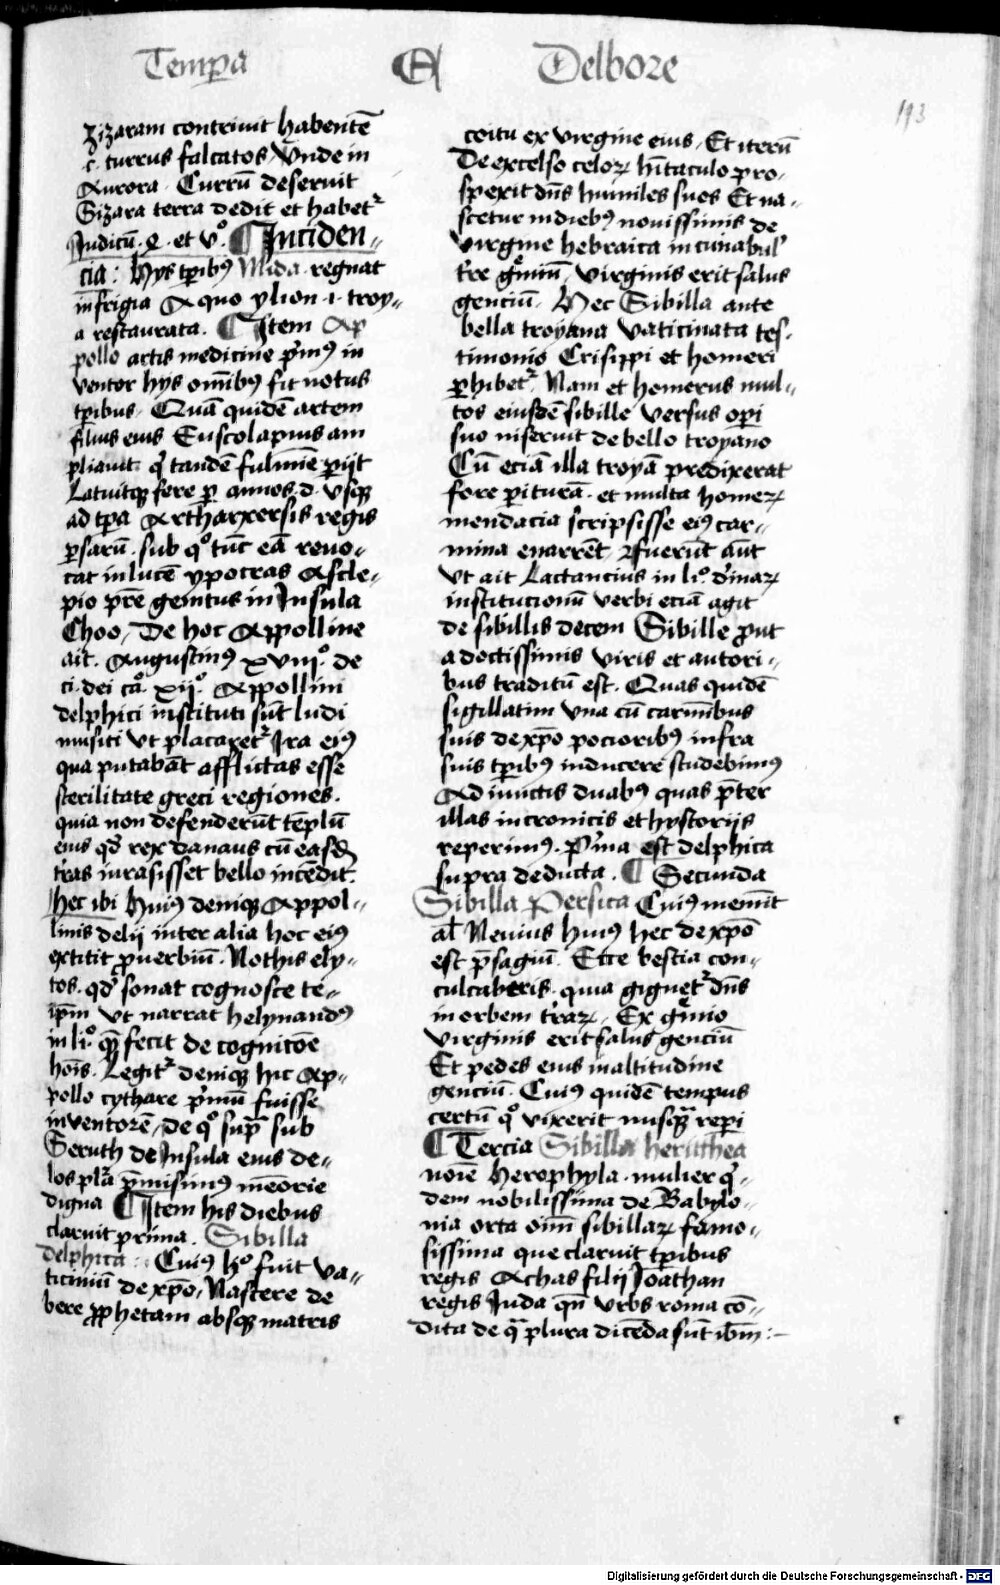 Temp̲a A Delbore
193
zizaram contriuit habentē
.c. turrus falcatos, Vnde in
Aurora . Currū deseruit
Sizara terra dedit et habetᷣ
Judicū . 4 . et vͦ. ¶ Jnciden„
cia : Hys tp̲ibꝰ Mida regnat
in frigia A quo ylion .i. troy„
a restaurata . ¶ Jtem Ap
pollo artis medicine p̓mꝰ in
ventor hys om̄ibꝰ fit notus
tp̲ibus, Quā quidē artem
filius eius Euscolapius am
pliauit qͥ tandē fulmīe p̲ijt
Latuitqꝫ fere p̲ annos .d. vsqꝫ
ad tp̲a Artharxersis regis
p̲sarū . sub qͦ tūc eā reuo„
cat in lucē ypocras Ascle„
pio pr̄e genitus in Jnsula
Choo, De hoc Appolline
ait . Augustinꝰ xviijͦ. de
ci . dei cāͦ. xijͦ. Appollini
delphici instituti sūt ludi
musici vt placaretᷣ Jra eiꝰ
qua putabāt afflictas esse
sterilitate greci regiones .
quia non defenderūt tēplū
eius qd̓ rex danaus cū easd̓
tr̓as inuasisset bello incēdit .
hec ibi Huiꝰ deniqꝫ Appol„
linis delij inter alia hoc eiꝰ
extitit ꝓuerbiū . Nothis ely„
tos . qd̓ sonat cognosce te„
ip̄m vt narrat helynandꝰ
in liͦ. quē fecit de cognicōe
hōis . Legitᷣ deniqꝫ hic Ap„
pollo cythare p̓mū fuisse
inuentorē, de qͦ sup̄ sub
Seruth de Jnsula eius de„
los pl̓a p̄misimꝰ mēorie
digna ¶ Jtem his diebus
claruit prima . Sibilla
delphica : Cuiꝰ hͦ fuit va„
ticiniū de xp̄o, Nascere de
bere ꝓphetam absqꝫ matris
coitu ex virgine eius, Et iterū
De excelso celoꝝ hītaculo pro„
spexit dn̄s humiles suos Et na„
scetur in diebꝰ nouissimis de
virgine hebraica in cunabul̓
tr̓e gͤmiū, virginis erit salus
genciū . Hec Sibilla ante
bella troyana vaticinata tes„
timonio Crisippi et homeri
p̲hibetᷣ, Nam et homerus mul„
tos eiusdē sibille versus op̲i
suo inseruit de bello troyano
Cū eciā illa troyā predixerat
fore p̲iturā . et multa homeꝝ
mendacia scripsisse eiꝰ car„
mina enarrēt . fuerūt aūt
vt ait Lactancius in liͦ. diuinaꝝ
institucionū verbi eciā agit
de sibillis decem Sibille ꝓut
a doctissimis viris et autori„
bus traditū est . Quas quidē
sigillatim vna cū carmībus
suis de xp̄o pocioribꝰ infra
suis tp̲ibꝰ inducere studebimꝰ
Adiunctis duabꝰ quas p̄ter
illas in cronicis et hystorijs
reperimꝰ . P̓ma est delphica
supra deducta . ¶ Secunda
Sibilla Persica Cuiꝰ meminit
al̓ Neuius huiꝰ hec de xp̄o
est p̄sagiū . Ecce bestia con„
culcaberis . quia gignetᷣ dn̄s
in orbem tr̓aꝝ, Ex gͤmio
virginis erit salus genciū
Et pedes eius in altitudine
genciū . Cuiꝰ quidē tempus
certū qͦ vixerit nusqᷓ rep̲i
¶ Tercia Sibilla herithea
noīe Herophyla . mulier qͥ„
dem nobilissima de Babylo„
nia orta oīm sibillaꝝ famo„
sissima que claruit tp̲ibus
regis Achas filij Joathan
regis Juda qn̄ vrbs roma cō„
dita de qᷓ plura dicēda sūt ibm̄ :–
Digitalisierung gefördert durch die Deutsche Forschungsgemeinschaft - DFG